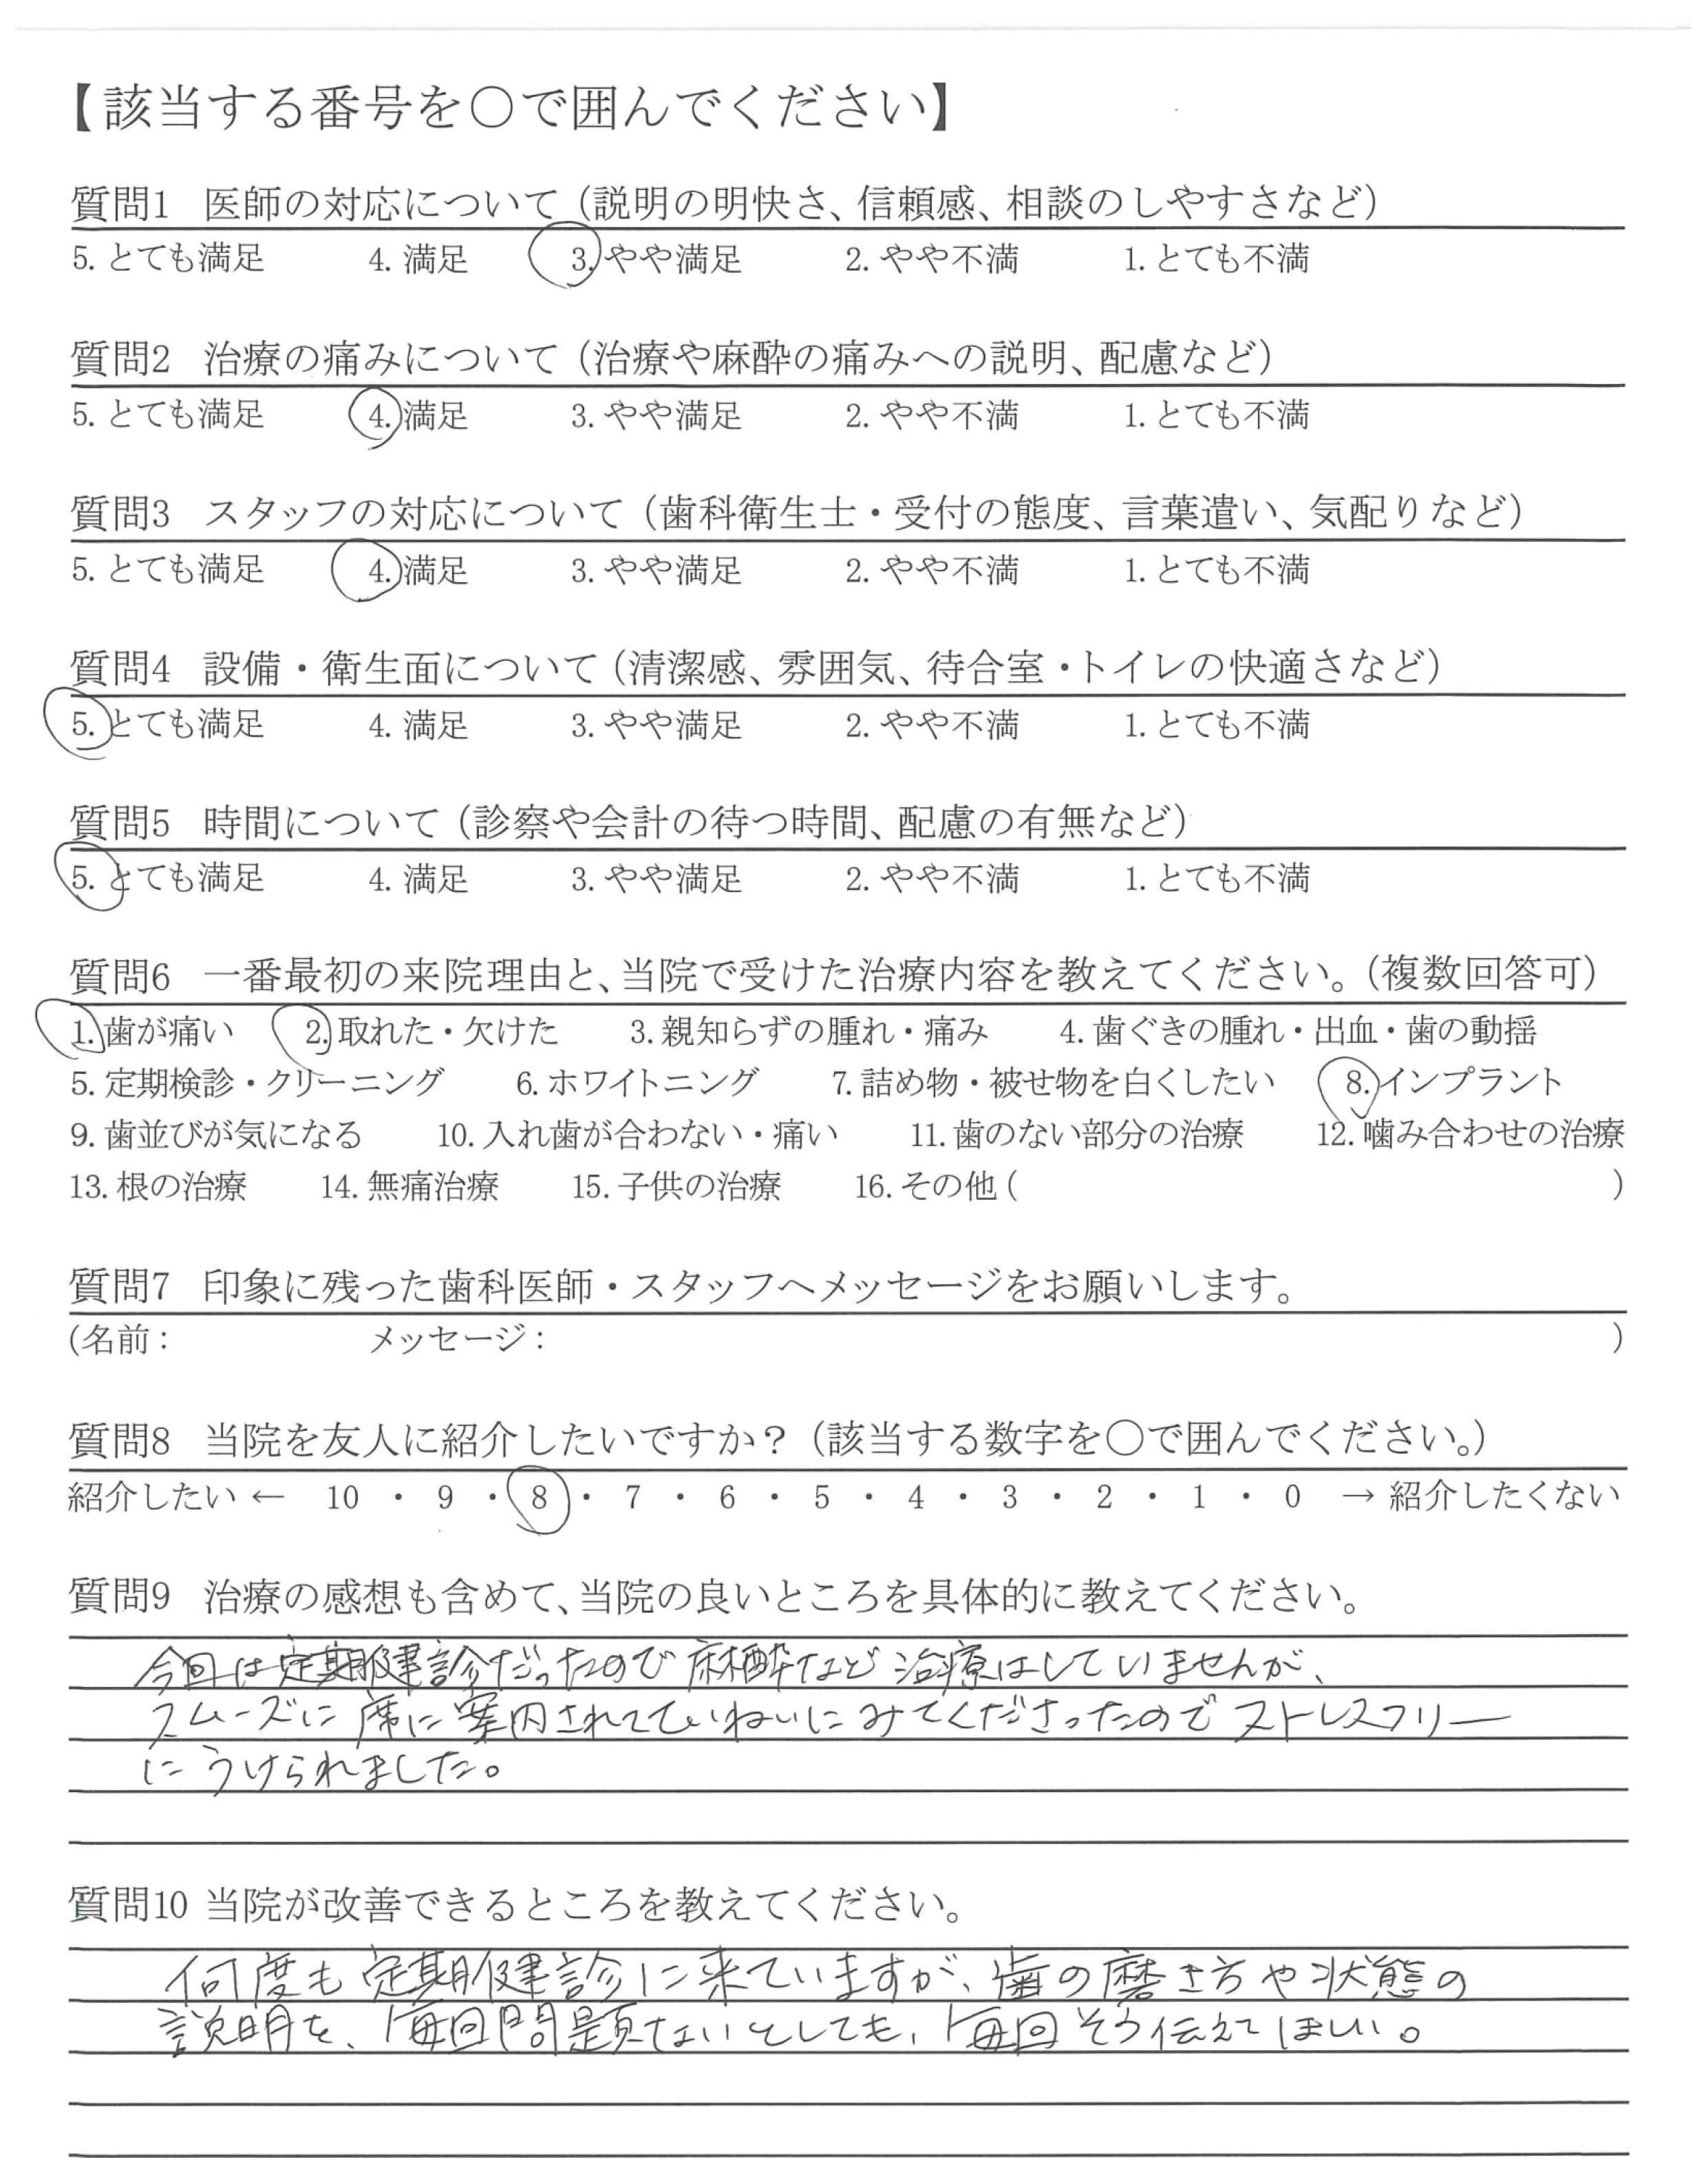 【該当する番号を〇で囲んでください】
質問1 医師の対応について（説明の明快さ、信頼感、相談のしやすさなど）
5. とても満足 4. 満足 3. やや満足 2. やや不満 1. とても不満
質問2 治療の痛みについて（治療や麻酔の痛みへの説明、配慮など）
5. とても満足 4. 満足 3. やや満足 2. やや不満 1. とても不満
質問3 スタッフの対応について（歯科衛生士・受付の態度、言葉遣い、気配りなど）
5. とても満足 4. 満足 3. やや満足 2. やや不満 1. とても不満
質問4 設備・衛生面について（清潔感、雰囲気、待合室・トイレの快適さなど）
5. とても満足 4. 満足 3. やや満足 2. やや不満 1. とても不満
質問5 時間について（診察や会計の待つ時間、配慮の有無など）
5. とても満足 4. 満足 3. やや満足 2. やや不満 1. とても不満
質問6 一番最初の来院理由と、当院で受けた治療内容を教えてください。（複数回答可）
1. 歯が痛い 2. 取れた・欠けた 3. 親知らずの腫れ・痛み 4. 歯ぐきの腫れ・出血・歯の動揺
5. 定期検診・クリーニング 6. ホワイトニング 7. 詰め物・被せ物を白くしたい 8. インプラント
9. 歯並びが気になる 10. 入れ歯が合わない・痛い 11. 歯のない部分の治療 12. 噛み合わせの治療
13. 根の治療 14. 無痛治療 15. 子供の治療 16. その他 ( )
質問7 印象に残った歯科医師・スタッフへメッセージをお願いします。
(名前： メッセージ： )
質問8 当院を友人に紹介したいですか？（該当する数字を〇で囲んでください。）
紹介したい ← 10 ・ 9 ・ 8 ・ 7 ・ 6 ・ 5 ・ 4 ・ 3 ・ 2 ・ 1 ・ 0 → 紹介したくない
質問9 治療の感想も含めて、当院の良いところを具体的に教えてください。
今回は定期健診だったので麻酔など治療はしていませんが、
スムーズに席に案内されてていねいにみてくださったのでストレスフリー
にうけられました。
質問10 当院が改善できるところを教えてください。
何度も定期健診に来ていますが、歯の磨き方や状態の
説明を、毎回問題ないとしても、毎回そう伝えてほしい。